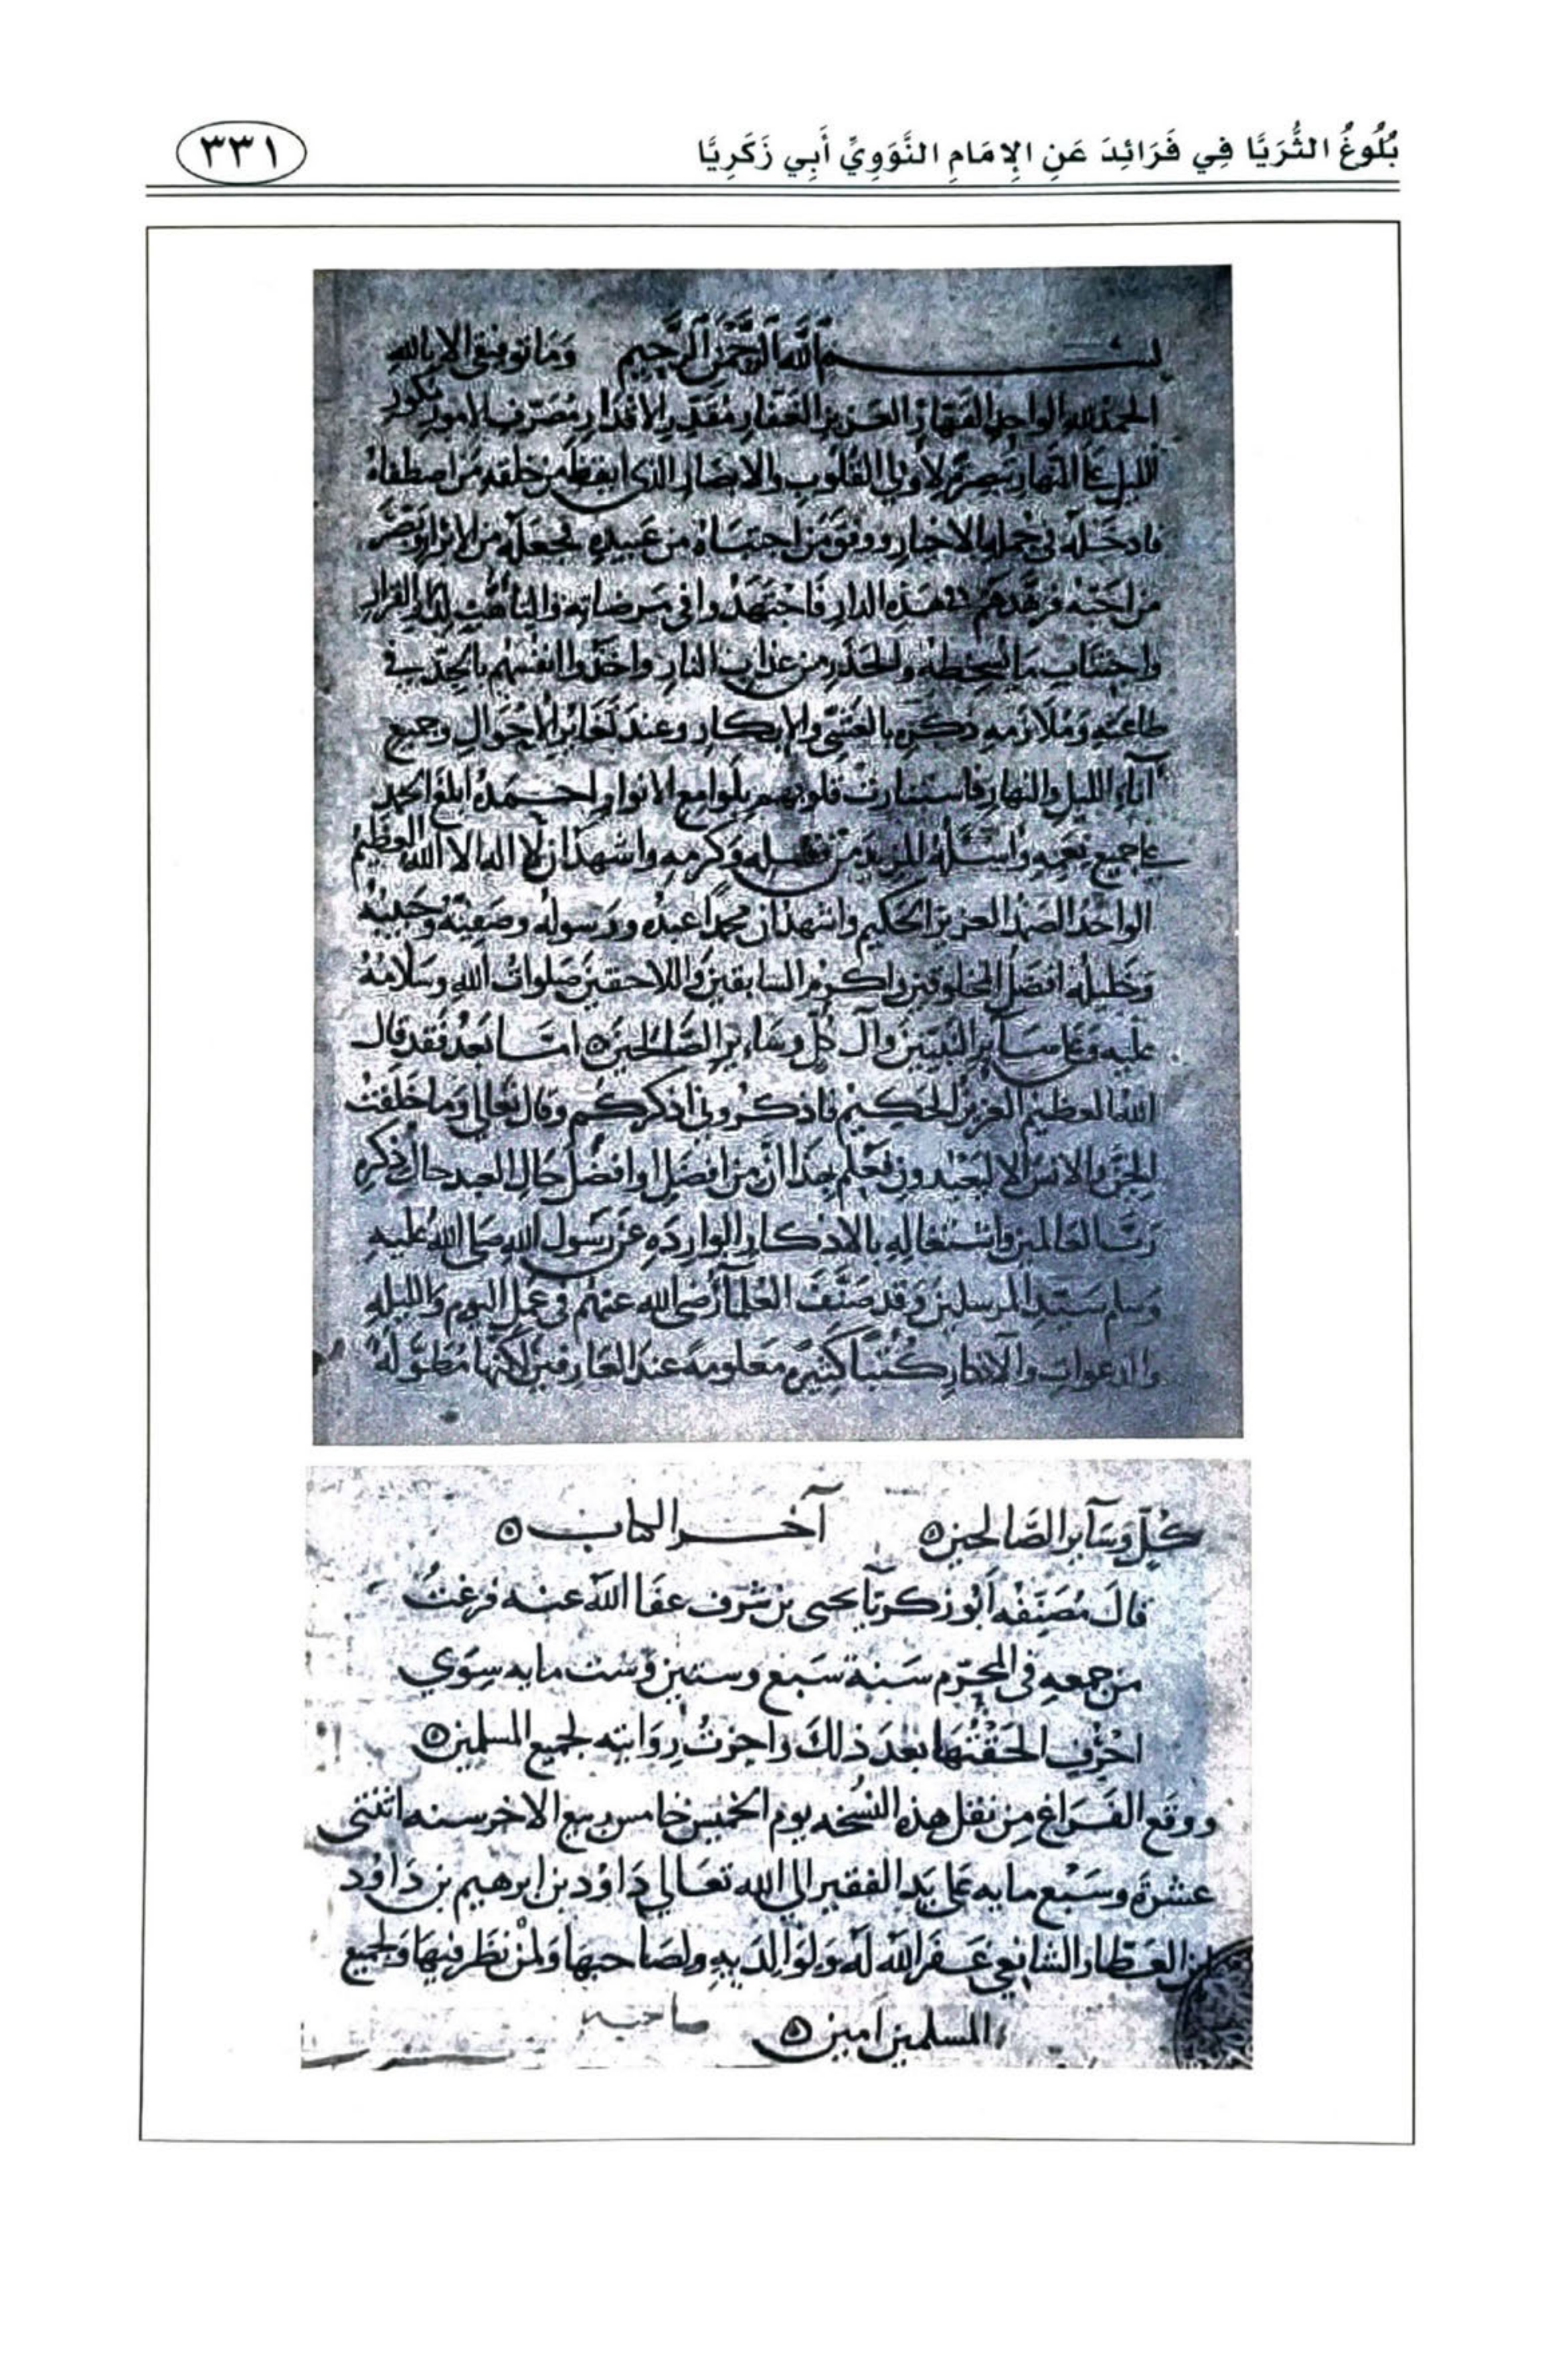 بُلُوغُ الثُّرَيَّا فِي فَرَائِدَ عَنِ الإِمَامِ النَّوَوِيِّ أَبِي زَكَرِيَّا
٣٣١
بسم الله الرحمن الرحيم وما توفيقي الا بالله
الحمد لله الواحد القهار العزيز الغفار مقدر الاقدار مصرف الامور مكور
الليل على النهار تبصرة لاولي القلوب والابصار الذي ايقظ من خلقه من اصطفاه
فادخله في جملة الاخيار ووفق من اجتباه من عبيده فجعله من الابرار وبصر
من احبه فزهدهم في هذه الدار فاجتهدوا في مرضاته والتأهب لدار القرار
واجتناب ما يسخطه والحذر من عذاب النار واخذوا انفسهم بالجد في
طاعته وملازمة ذكره بالعشي والابكار وعند تغاير الاحوال وجميع
آناء الليل والنهار فاستنارت قلوبهم بلوامع الانوار احمده ابلغ الحمد
على جميع نعمه واسئله المزيد من فضله وكرمه واشهد ان لا اله الا الله العظيم
الواحد الصمد العزيز الحكيم واشهد ان محمدا عبده ورسوله وصفيه وحبيبه
وخليله افضل المخلوقين واكرم السابقين واللاحقين صلوات الله وسلامه
عليه وعلى سائر النبيين وآل كل وسائر الصالحين ٥ اما بعد فقد قال
الله العظيم العزيز الحكيم فاذكروني اذكركم وقال تعالى وما خلقت
الجن والانس الا ليعبدون فعلم بهذا ان من افضل او افضل حال العبد حال ذكره
رب العالمين واشتغاله بالاذكار الواردة عن رسول الله صلى الله عليه
وسلم سيد المرسلين وقد صنف العلماء رضي الله عنهم في عمل اليوم والليلة
والدعوات والاذكار كتبا كثيرة معلومة عند العارفين لكنها مطولة
كُلٍّ وسَآير الصَّالحين ٥ آخر الكتاب ٥
قالَ مُصَنِّفه أبُو زكريّا يحيى بن شرف عفَا الله عنه فرغتُ
من جمعه في المحرّم سَنة سَبع وستين وست مايه سِوَي
احْرُف الحَقْتُهَا بعد ذلك واجزتُ رِوَايته لجميع المسلمين ٥
ووقع الفَراغ مِن نقل هذه النُسخه يوم الخميس خامس ربيع الاخر سنه اثنتي
عشرة وسَبْع مايه على يَد الفقير الي الله تعَالي دَاوُد بن ابرهيم بن دَاوُد
ابن العَطّار الشافعي غَفر الله لهُ وَلوَالدَيهِ ولصَاحبهَا ولمَنْ نظَر فيهَا وَلجميع
المسلمين امين ٥ صاحبه